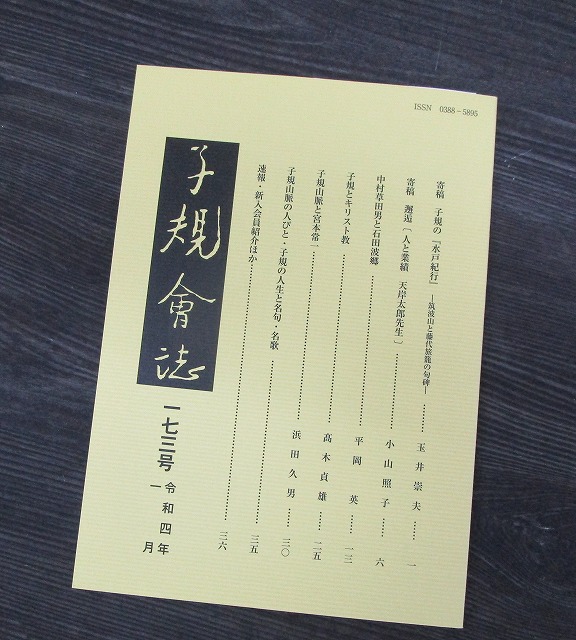 ISSN 0388-5895
寄稿 子規の『水戸紀行』―筑波山と藤代旅籠の句碑― ……… 玉井崇夫 …… 一
寄稿 邂逅〔人と業績 天岸太郎先生〕……… 小山照子 …… 六
中村草田男と石田波郷 ……… 平岡 英 …… 一三
子規とキリスト教 ……… 髙木貞雄 …… 二五
子規山脈と宮本常一 ……… 浜田久男 …… 三〇
子規山脈の人びと・子規の人生と名句・名歌 ……… 三五
速報・新入会員紹介ほか ……… 三六
子規會誌
一七三号
令和四年
一月